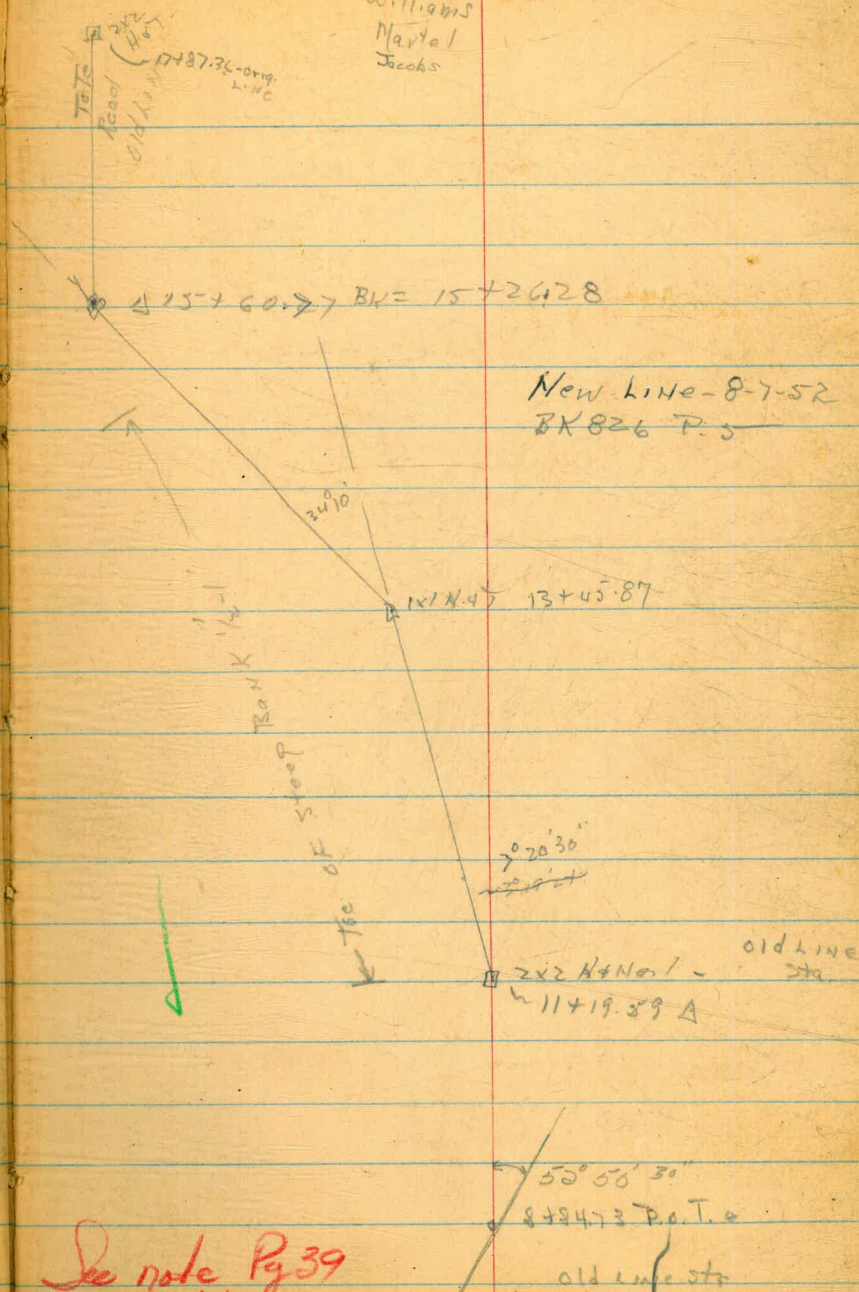 Williams
Martel
Jacobs
2x2
17+87.36-orig.
Line
Road
Old Line
Δ 15+60.77 BK= 15+26.28
New Line-8-7-52
BK 826 P. 5
34°10'
1x1 H.&T 13+45.87
Toe of steep Bank 1/2-1
7°20'30"
2x2 H&Nail -
Old Line
Sta.
11+19.59 Δ
50' 30"
8+84.73 P.O.T.
Old Line Sta
See note Pg 39